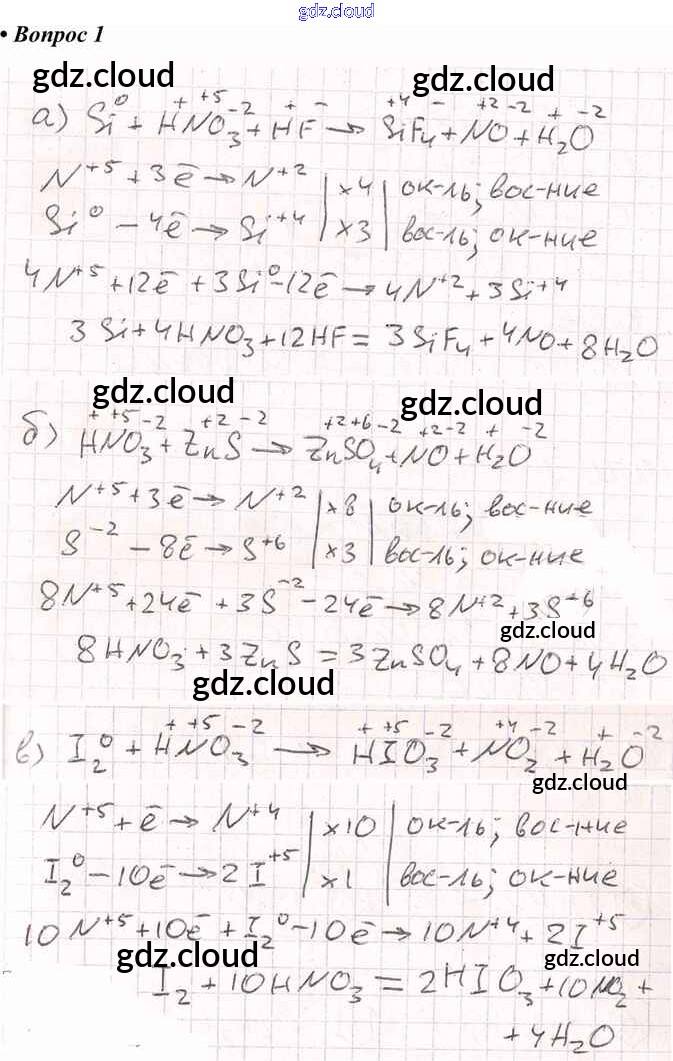 gdz.cloud
• Вопрос 1
gdz.cloud gdz.cloud
0 + +5 -2 + - +4 - +2 -2 + -2
а) Si + HNO3 + HF → SiF4 + NO + H2O
N+5 + 3ē → N+2 | x4 | ок-ль; вос-ние
Si0 - 4ē → Si+4 | x3 | вос-ль; ок-ние
4N+5 + 12ē + 3Si0 - 12ē → 4N+2 + 3Si+4
3Si + 4HNO3 + 12HF = 3SiF4 + 4NO + 8H2O
gdz.cloud gdz.cloud
+ +5 -2 +2 -2 +2 +6 -2 +2 -2 + -2
б) HNO3 + ZnS → ZnSO4 + NO + H2O
N+5 + 3ē → N+2 | x8 | ок-ль; вос-ние
S-2 - 8ē → S+6 | x3 | вос-ль; ок-ние
8N+5 + 24ē + 3S-2 - 24ē → 8N+2 + 3S+6
gdz.cloud
8HNO3 + 3ZnS = 3ZnSO4 + 8NO + 4H2O
gdz.cloud
0 + +5 -2 + +5 -2 +4 -2 + -2
в) I2 + HNO3 → HIO3 + NO2 + H2O
gdz.cloud
N+5 + ē → N+4 | x10 | ок-ль; вос-ние
I20 - 10ē → 2I+5 | x1 | вос-ль; ок-ние
10N+5 + 10ē + I20 - 10ē → 10N+4 + 2I+5
gdz.cloud gdz.cloud
I2 + 10HNO3 = 2HIO3 + 10NO2 +
+ 4H2O